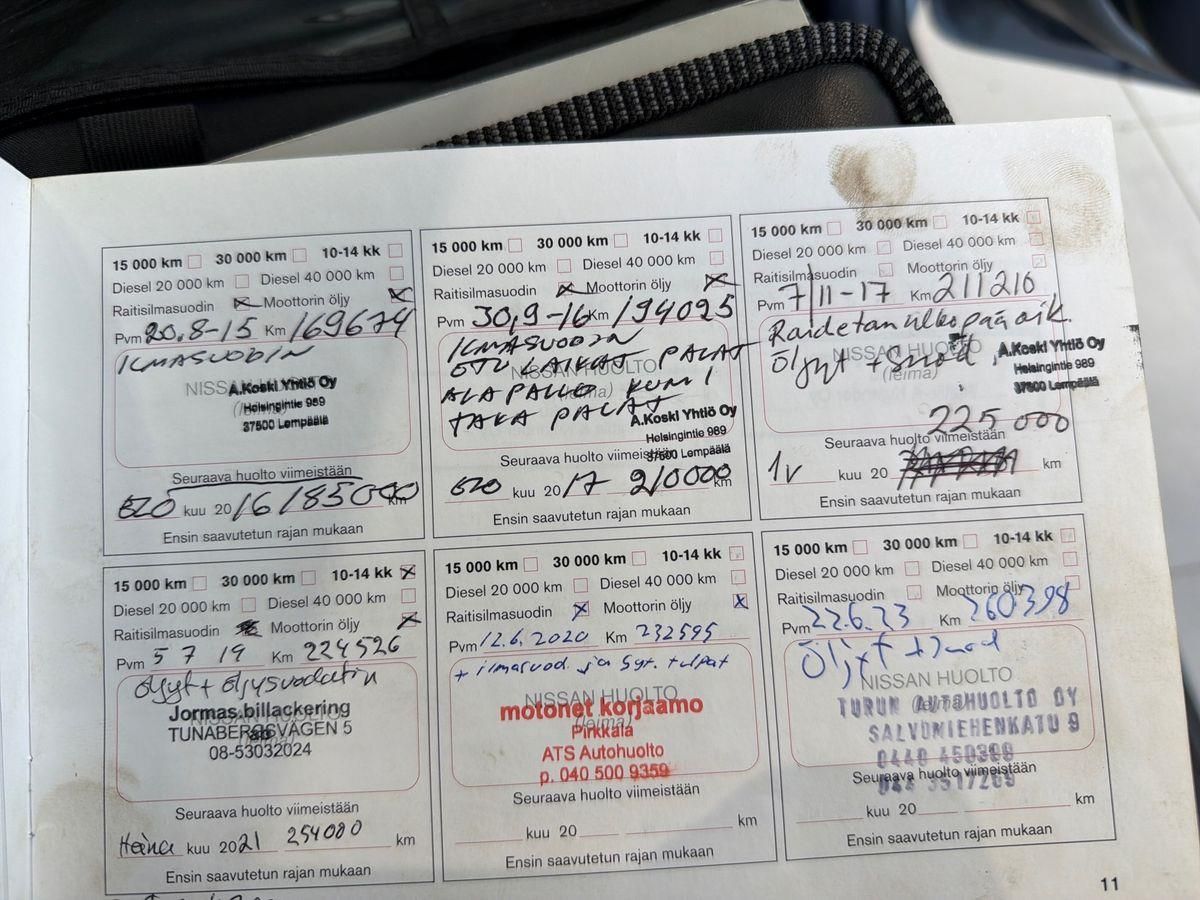 15 000 km 30 000 km 10-14 kk
Diesel 20 000 km Diesel 40 000 km
Raitisilmasuodin Moottorin öljy
Pvm 20.8-15 Km 169674
ILMASUODIN
NISSAN HUOLTO
(leima)
A.Koski Yhtiö Oy
Helsingintie 989
37500 Lempäälä
Seuraava huolto viimeistään
ELO kuu 2016 185000 km
Ensin saavutetun rajan mukaan
15 000 km 30 000 km 10-14 kk
Diesel 20 000 km Diesel 40 000 km
Raitisilmasuodin Moottorin öljy
Pvm 30,9-16 Km 194025
ILMASUODIN
ETU LAIKAT PALAT
NISSAN HUOLTO
(leima)
ALAPALLO KUMI
TAKA PALAT
A.Koski Yhtiö Oy
Helsingintie 989
37500 Lempäälä
Seuraava huolto viimeistään
ELO kuu 2017 210000 km
Ensin saavutetun rajan mukaan
15 000 km 30 000 km 10-14 kk
Diesel 20 000 km Diesel 40 000 km
Raitisilmasuodin Moottorin öljy
Pvm 7/11-17 Km 211210
Raidetan ulkopää oik.
NISSAN HUOLTO
(leima)
Öljyt + Suod.
A.Koski Yhtiö Oy
Helsingintie 989
37500 Lempäälä
225 000
Seuraava huolto viimeistään
1v kuu 20 km
Ensin saavutetun rajan mukaan
15 000 km 30 000 km 10-14 kk
Diesel 20 000 km Diesel 40 000 km
Raitisilmasuodin Moottorin öljy
Pvm 5 7 19 Km 224526
öljyt + öljysuodatin
Jormas billackering
NISSAN HUOLTO
TUNABERGSVÄGEN 5
08-53032024
Seuraava huolto viimeistään
Heinä kuu 2021 254000 km
Ensin saavutetun rajan mukaan
15 000 km 30 000 km 10-14 kk
Diesel 20 000 km Diesel 40 000 km
Raitisilmasuodin Moottorin öljy
Pvm 12.6.2020 Km 232595
+ ilmasuod. ja Syt. tulpat
NISSAN HUOLTO
(leima)
motonet korjaamo
Pirkkala
ATS Autohuolto
p. 040 500 9359
Seuraava huolto viimeistään
kuu 20 km
Ensin saavutetun rajan mukaan
15 000 km 30 000 km 10-14 kk
Diesel 20 000 km Diesel 40 000 km
Raitisilmasuodin Moottorin öljy
Pvm 22.6.23 Km 260398
Öljyt + Suod
NISSAN HUOLTO
(leima)
TURUN AUTOHUOLTO OY
SALVUMIEHENKATU 9
0440 450399
044 3517269
Seuraava huolto viimeistään
kuu 20 km
Ensin saavutetun rajan mukaan
11